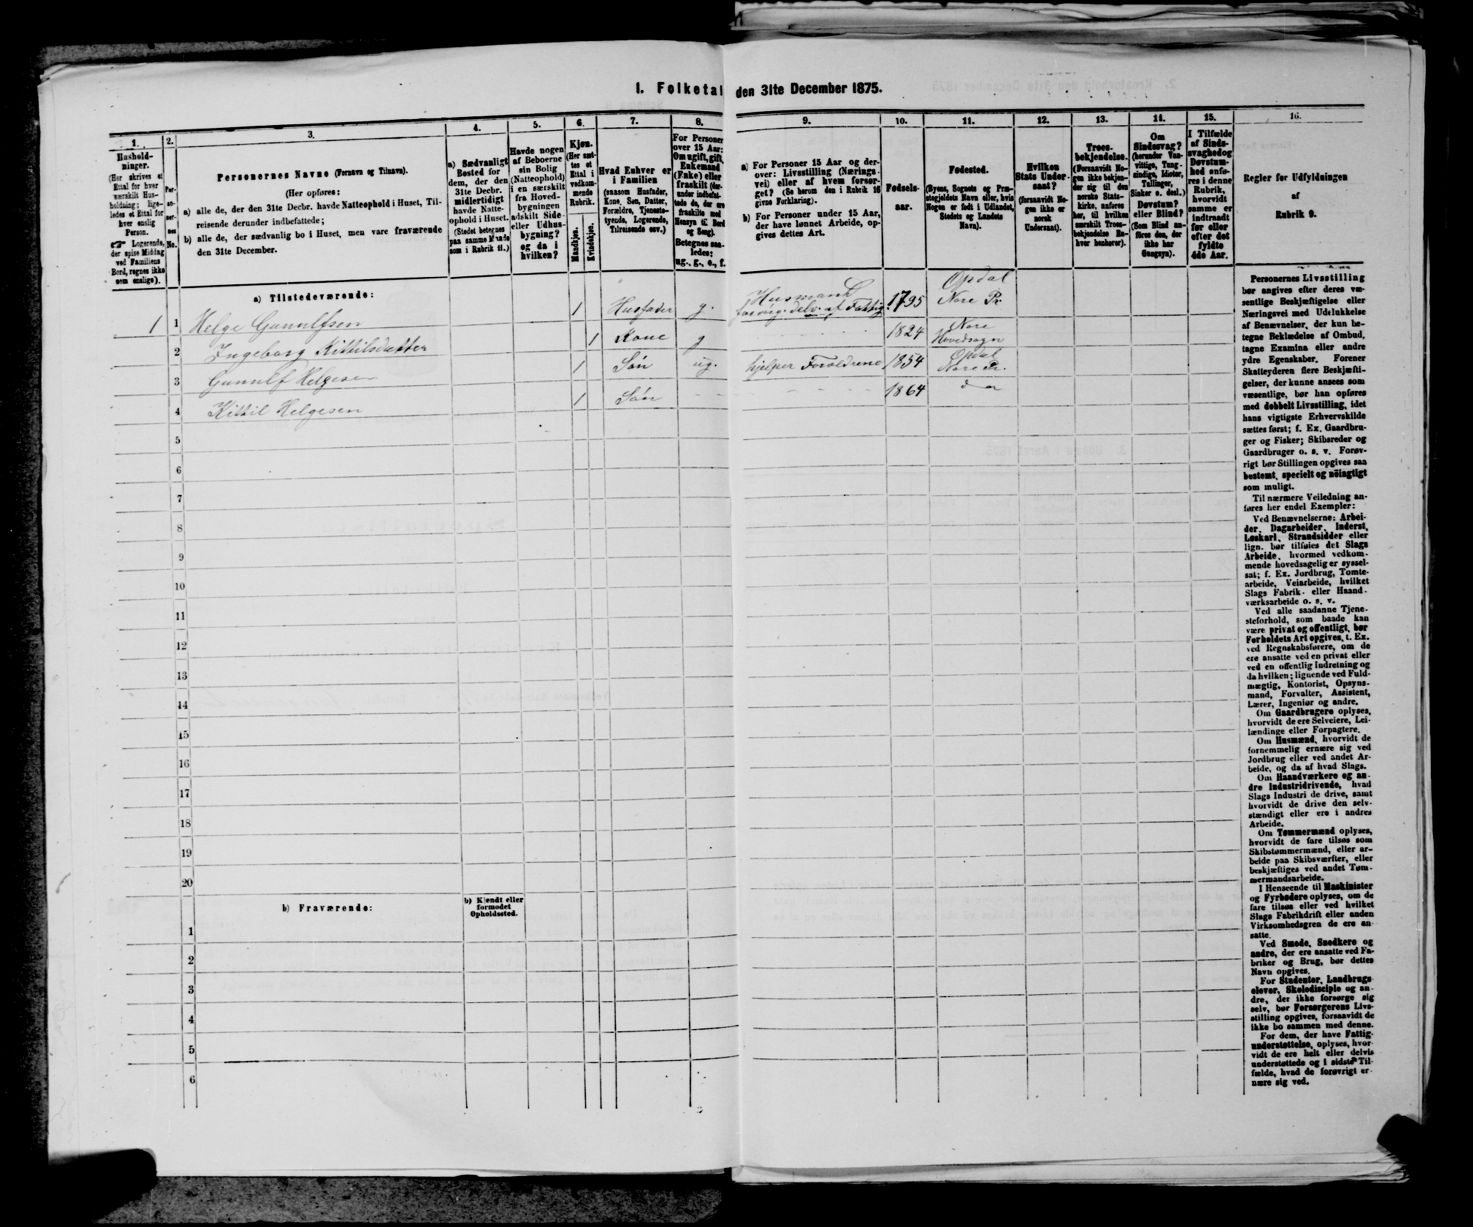 I. Folketal den 31te December 1875.
1.
Hushold-
ninger.
(Her skrives et
Ettal for hver
særskilt Hus-
holdning; lige-
ledes et Ettal for
hver enslig
Person.
☞ Logerende,
der spise Middag
ved Familiens
Bord, regnes ikke
som enslige).
2.
Per-
so-
ner-
nes
No.
3.
Personernes Navne (Fornavn og Tilnavn).
(Her opføres:
a) alle de, der den 31te Decbr. havde Natteophold i Huset, Til-
reisende derunder indbefattede;
b) alle de, der sædvanlig bo i Huset, men vare fraværende
den 31te December.
4.
a) Sædvanligt
Bosted for
dem, der den
31te Decbr.
midlertidigt
havde Natte-
ophold i Huset.
(Stedet betegnes
paa samme Maade
som i Rubrik 11.)
5.
Havde nogen
af Beboerne
sin Bolig
(Natteophold)
i en særskilt
fra Hoved-
bygningen
adskilt Side-
eller Udhus-
bygning?
og da i
hvilken?
6.
Kjøn.
(Her sæt-
tes et
Ettal i
vedkom-
mende
Rubrik.
Mandkjøn.
Kvindekjøn.
7.
Hvad Enhver er
i Familien
(saasom Husfader,
Kone, Søn, Datter,
Forældre, Tjeneste-
tyende, Logerende,
Tilreisende osv.)
8.
For Personer
over 15 Aar:
Om ugift, gift,
Enkemand
(Enke) eller
fraskilt (der-
under indbefat-
tede de, der ere
fraskilte med
Hensyn til Bord
og Seng).
Betegnes saa-
ledes:
ug., g., e., f.
9.
a) For Personer 15 Aar og der-
over: Livsstilling (Nærings-
vei) eller af hvem forsør-
get? (Se herom den i Rubrik 16
givne Forklaring).
b) For Personer under 15 Aar,
der have lønnet Arbeide, op-
gives dettes Art.
10.
Fødsels-
aar.
11.
Fødested.
(Byens, Sognets og Præ-
stegjeldets Navn eller, hvis
Nogen er født i Udlandet,
Stedets og Landets
Navn).
12.
Hvilken
Stats Under-
saat?
(forsaavidt No-
gen ikke er
norsk
Undersaat).
13.
Troes-
bekjendelse.
(Forsaavidt No-
gen ikke bekjen-
der sig til den
norske Stats-
kirke, anføres
her, til hvilken
særskilt Troes-
bekjendelse En-
hver henhører).
14.
Om
Sindssvag?
(herunder Van-
vittige, Tung-
sindige, Idioter,
Tullinger,
Sinker o. desl.)
Døvstum?
eller Blind?
(Som Blind an-
føres den, der
ikke har
Gangsyn).
15.
I Tilfælde
af Sinds-
svaghed og
Døvstum-
hed anfø-
res i denne
Rubrik,
hvorvidt
samme er
indtraadt
før eller
efter det
fyldte
4de Aar.
16.
Regler for Udfyldningen
af
Rubrik 9.
a) Tilstedeværende:
1 1 Helge Gunulfsen 1 Husfader g. Husmand forsørg. delv. af Fattigv. 1795 Opdal Nore Pr.
2 Ingeborg Kittilsdatter 1 Kone g 1824 Nore Hovedsogn
3 Gunulf Helgesen 1 Søn ug. hjelper Forældrene 1854 Opdal Nore Pr.
4 Kittil Helgesen 1 Søn 1864 d o
5
6
7
8
9
10
11
12
13
14
15
16
17
18
19
20
b) Fraværende:
b) Kjendt eller
formodet
Opholdssted.
1
2
3
4
5
6
Personernes Livsstilling
bør angives efter deres væ-
sentlige Beskjæftigelse eller
Næringsvei med Udelukkelse
af Benævnelser, der kun be-
tegne Beklædelse af Ombud,
tagne Examina eller andre
ydre Egenskaber. Forener
Skatteyderen flere Beskjæfti-
gelser, der kunne ansees som
væsentlige, bør han opføres
med dobbelt Livsstilling, idet
hans vigtigste Erhvervskilde
sættes først; f. Ex. Gaardbru-
ger og Fisker; Skibsreder og
Gaardbruger o. s. v. Forøv-
rigt bør Stillingen opgives saa
bestemt, specielt og nöiagtigt
som muligt.
Til nærmere Veiledning an-
føres her endel Exempler:
Ved Benævnelserne: Arbei-
der, Dagarbeider, Inderst,
Løskarl, Strandsidder eller
lign. bør tilføies det Slags
Arbeide, hvormed vedkom-
mende hovedsagelig er syssel-
sat; f. Ex. Jordbrug, Tomte-
arbeide, Veiarbeide, hvilket
Slags Fabrik- eller Haand-
værksarbeide o. s. v.
Ved alle saadanne Tjene-
steforhold, som baade kan
være privat og offentligt, bør
Forholdets Art opgives, t. Ex.
ved Regnskabsførere, om de
ere ansatte ved en privat eller
ved en offentlig Indretning og
da hvilken; lignende ved Fuld-
mægtig, Kontorist, Opsyns-
mand, Forvalter, Assistent,
Lærer, Ingeniør og andre.
Om Gaardbrugere oplyses,
hvorvidt de ere Selveiere, Lei-
lændinge eller Forpagtere.
Om Husmænd, hvorvidt de
fornemmelig ernære sig ved
Jordbrug eller ved andet Ar-
beide, og da af hvad Slags.
Om Haandværkere og an-
dre Industridrivende, hvad
Slags Industri de drive, samt
hvorvidt de drive den selv-
stændigt eller ere i andres
Arbeide.
Om Tømmermænd oplyses,
hvorvidt de fare tilsøs som
Skibstømmermænd, eller ar-
beide paa Skibsværfter, eller
beskjæftiges ved andet Tøm-
mermandsarbeide.
I Henseende til Maskinister
og Fyrbødere oplyses, om de
fare tilsøs eller ved hvilket
Slags Fabrikdrift eller anden
Virksomhedsgren de ere an-
satte.
Ved Smede, Snedkere og
andre, der ere ansatte ved Fa-
briker og Brug, bør dettes
Navn opgives.
For Studenter, Landbrugs
elever, Skoledisciple og an-
dre, der ikke forsørge sig
selv, bør Forsørgerens Livs-
stilling opgives, forsaavidt de
ikke bo sammen med denne.
For dem, der have Fattig-
understøttelse, oplyses, hvor-
vidt de ere helt eller delvis
understøttede og i sidste Til-
fælde, hvad de forøvrigt er-
nære sig ved.